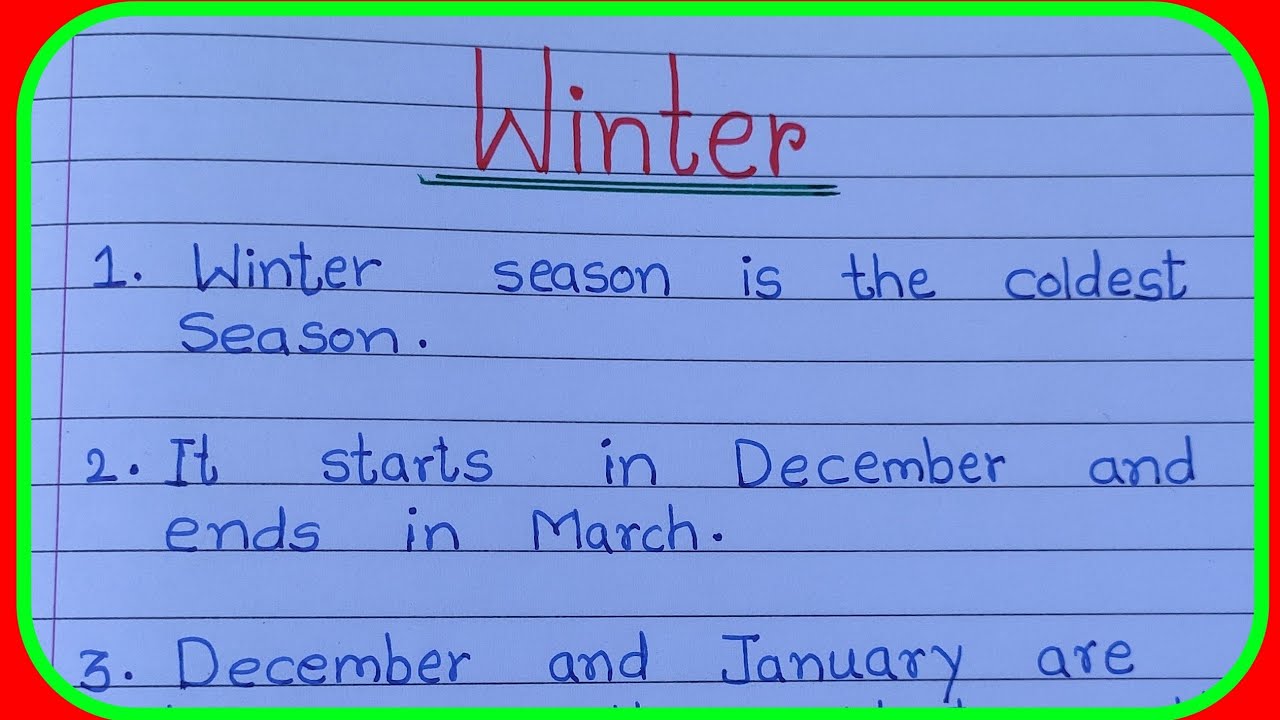 Winter
1. Winter season is the coldest
Season.
2. It starts in December and
ends in March.
3. December and January are